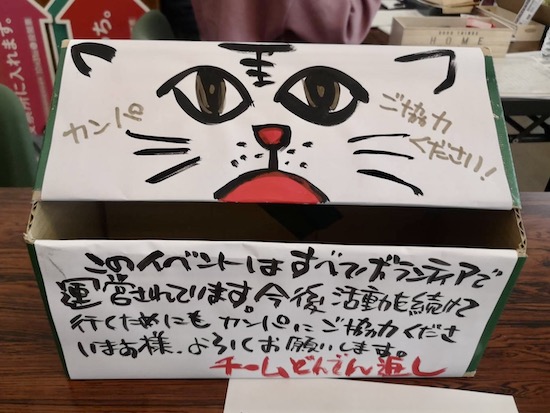 に入れます。
カンパ
ご協力
ください!
HOME
このイベントはすべてボランティアで
運営されています。今後、活動も続けて
行くためにもカンパにご協力くださ
いませ様、よろしくお願いします。
チームどんでん返し